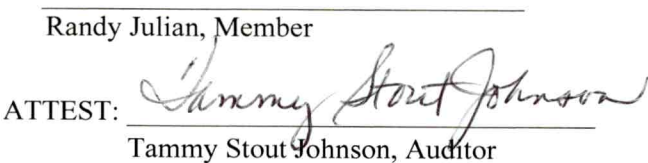 Randy Julian, Member
ATTEST: Tammy Stout Johnson
Tammy Stout Johnson, Auditor